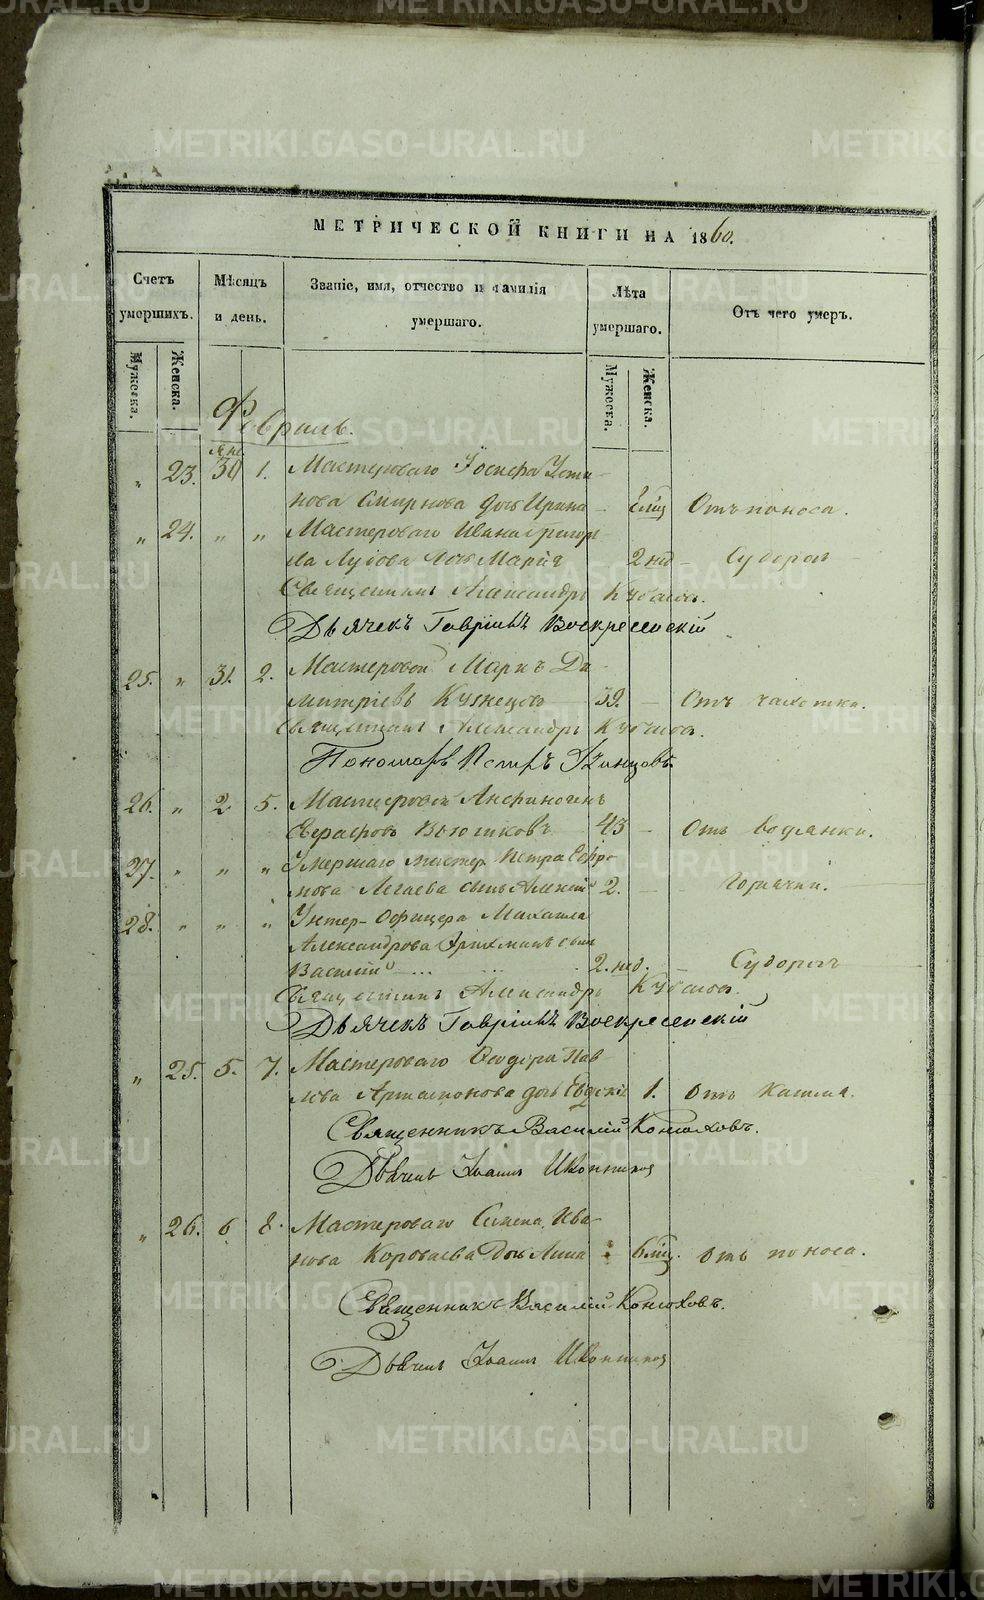 МЕТРИЧЕСКОЙ КНИГИ НА 1860.
Счетъ умершихъ. Мѣсяцъ и день. Званіе, имя, отчество и фамилія умершаго. Лѣта умершаго. Отъ чего умеръ.
Мужеска. Женска. Мужеска. Женска.
Февраль.
Янв
„ 23. 30 1. Мастероваго Іосифа Усти-
нова Смирнова дочь Ирина – мѣц Отъ поноса.
„ 24. „ „ Мастероваго Ивана Григорь-
ева дочь Марія 2 нед – Судорогъ
Священникъ Александръ
Дьячекъ Гавріилъ Воскресенскій
25. „ 31. 2. Мастеровой Маркъ Ди-
митріевъ Кузнецовъ 39. – Отъ чахотки.
Священникъ Александръ
Пономарь Петръ
26. „ 2. 5. Мастеровой Анфиногенъ
Вьюшковъ 43 – Отъ водянки.
27. „ „ „ Умершаго мастер. Петра Ефре-
мова сынъ Алексій 2. – Горячки.
28. „ „ „ Унтер-Офицера Михаила
Александрова сынъ
Василій 2. нед. – Судорогъ
Священникъ Александръ
Дьячекъ Гавріилъ Воскресенскій
„ 25. 5. 7. Мастероваго Ѳеодора Пав-
лова Артамонова дочь Евдокія 1. Отъ Кашля.
Священникъ Василій Конюховъ.
Дьячекъ Іоаннъ Иконниковъ
„ 26. 6 8. Мастероваго Семена Ива-
нова Короваева Дочь Анна 6 мѣц. Отъ поноса.
Священникъ Василій Конюховъ.
Дьячекъ Іоаннъ Иконниковъ
METRIKI.GASO-URAL.RU